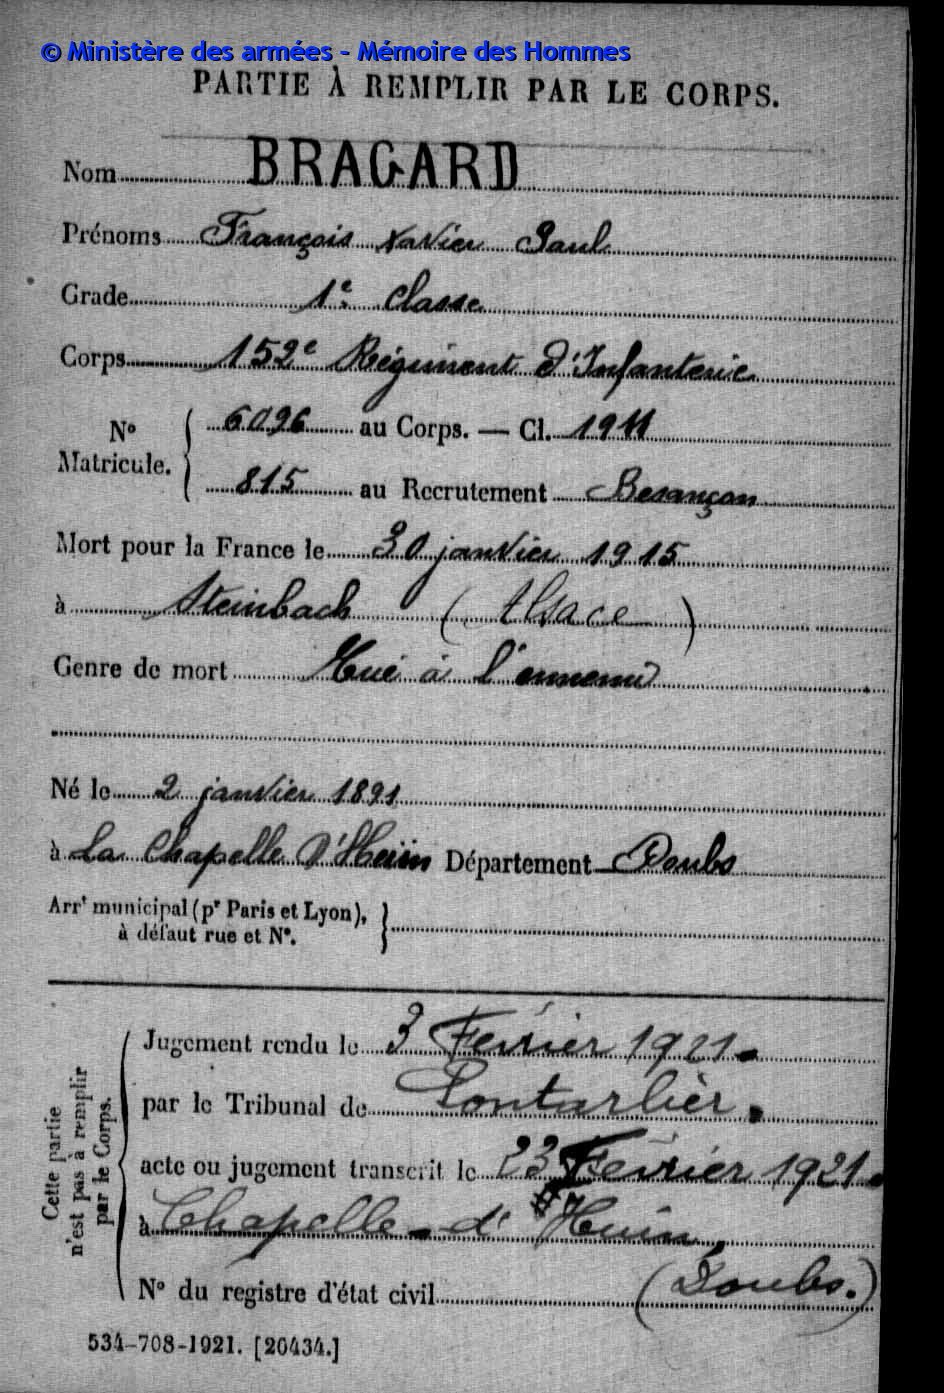 © Ministère des armées - Mémoire des Hommes
PARTIE À REMPLIR PAR LE CORPS.
Nom BRAGARD
Prénoms François Xavier Paul
Grade 1e classe
Corps 152e Régiment d'Infanterie
No Matricule. { 6096 au Corps. — Cl. 1911
815 au Recrutement Besançon
Mort pour la France le 30 janvier 1915
à Steinbach (Alsace)
Genre de mort Tué à l'ennemi
Né le 2 janvier 1891
à La Chapelle d'Huin Département Doubs
Arrt municipal (pr Paris et Lyon),
à défaut rue et No.
Cette partie n'est pas à remplir par le Corps.
Jugement rendu le 3 Février 1921.
par le Tribunal de Pontarlier.
acte ou jugement transcrit le 23 Février 1921.
à Chapelle-d'Huin,
No du registre d'état civil (Doubs.)
534-708-1921. [26434.]